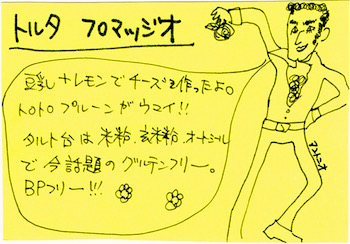 トルタ フロマッジオ
豆乳+レモンでチーズを作ったよ。
トロトロプルーンがウマイ!!
タルト台は米粉、玄米粉、オートミール
で今話題のグルテンフリー。
BPフリー!!!
アントニオ